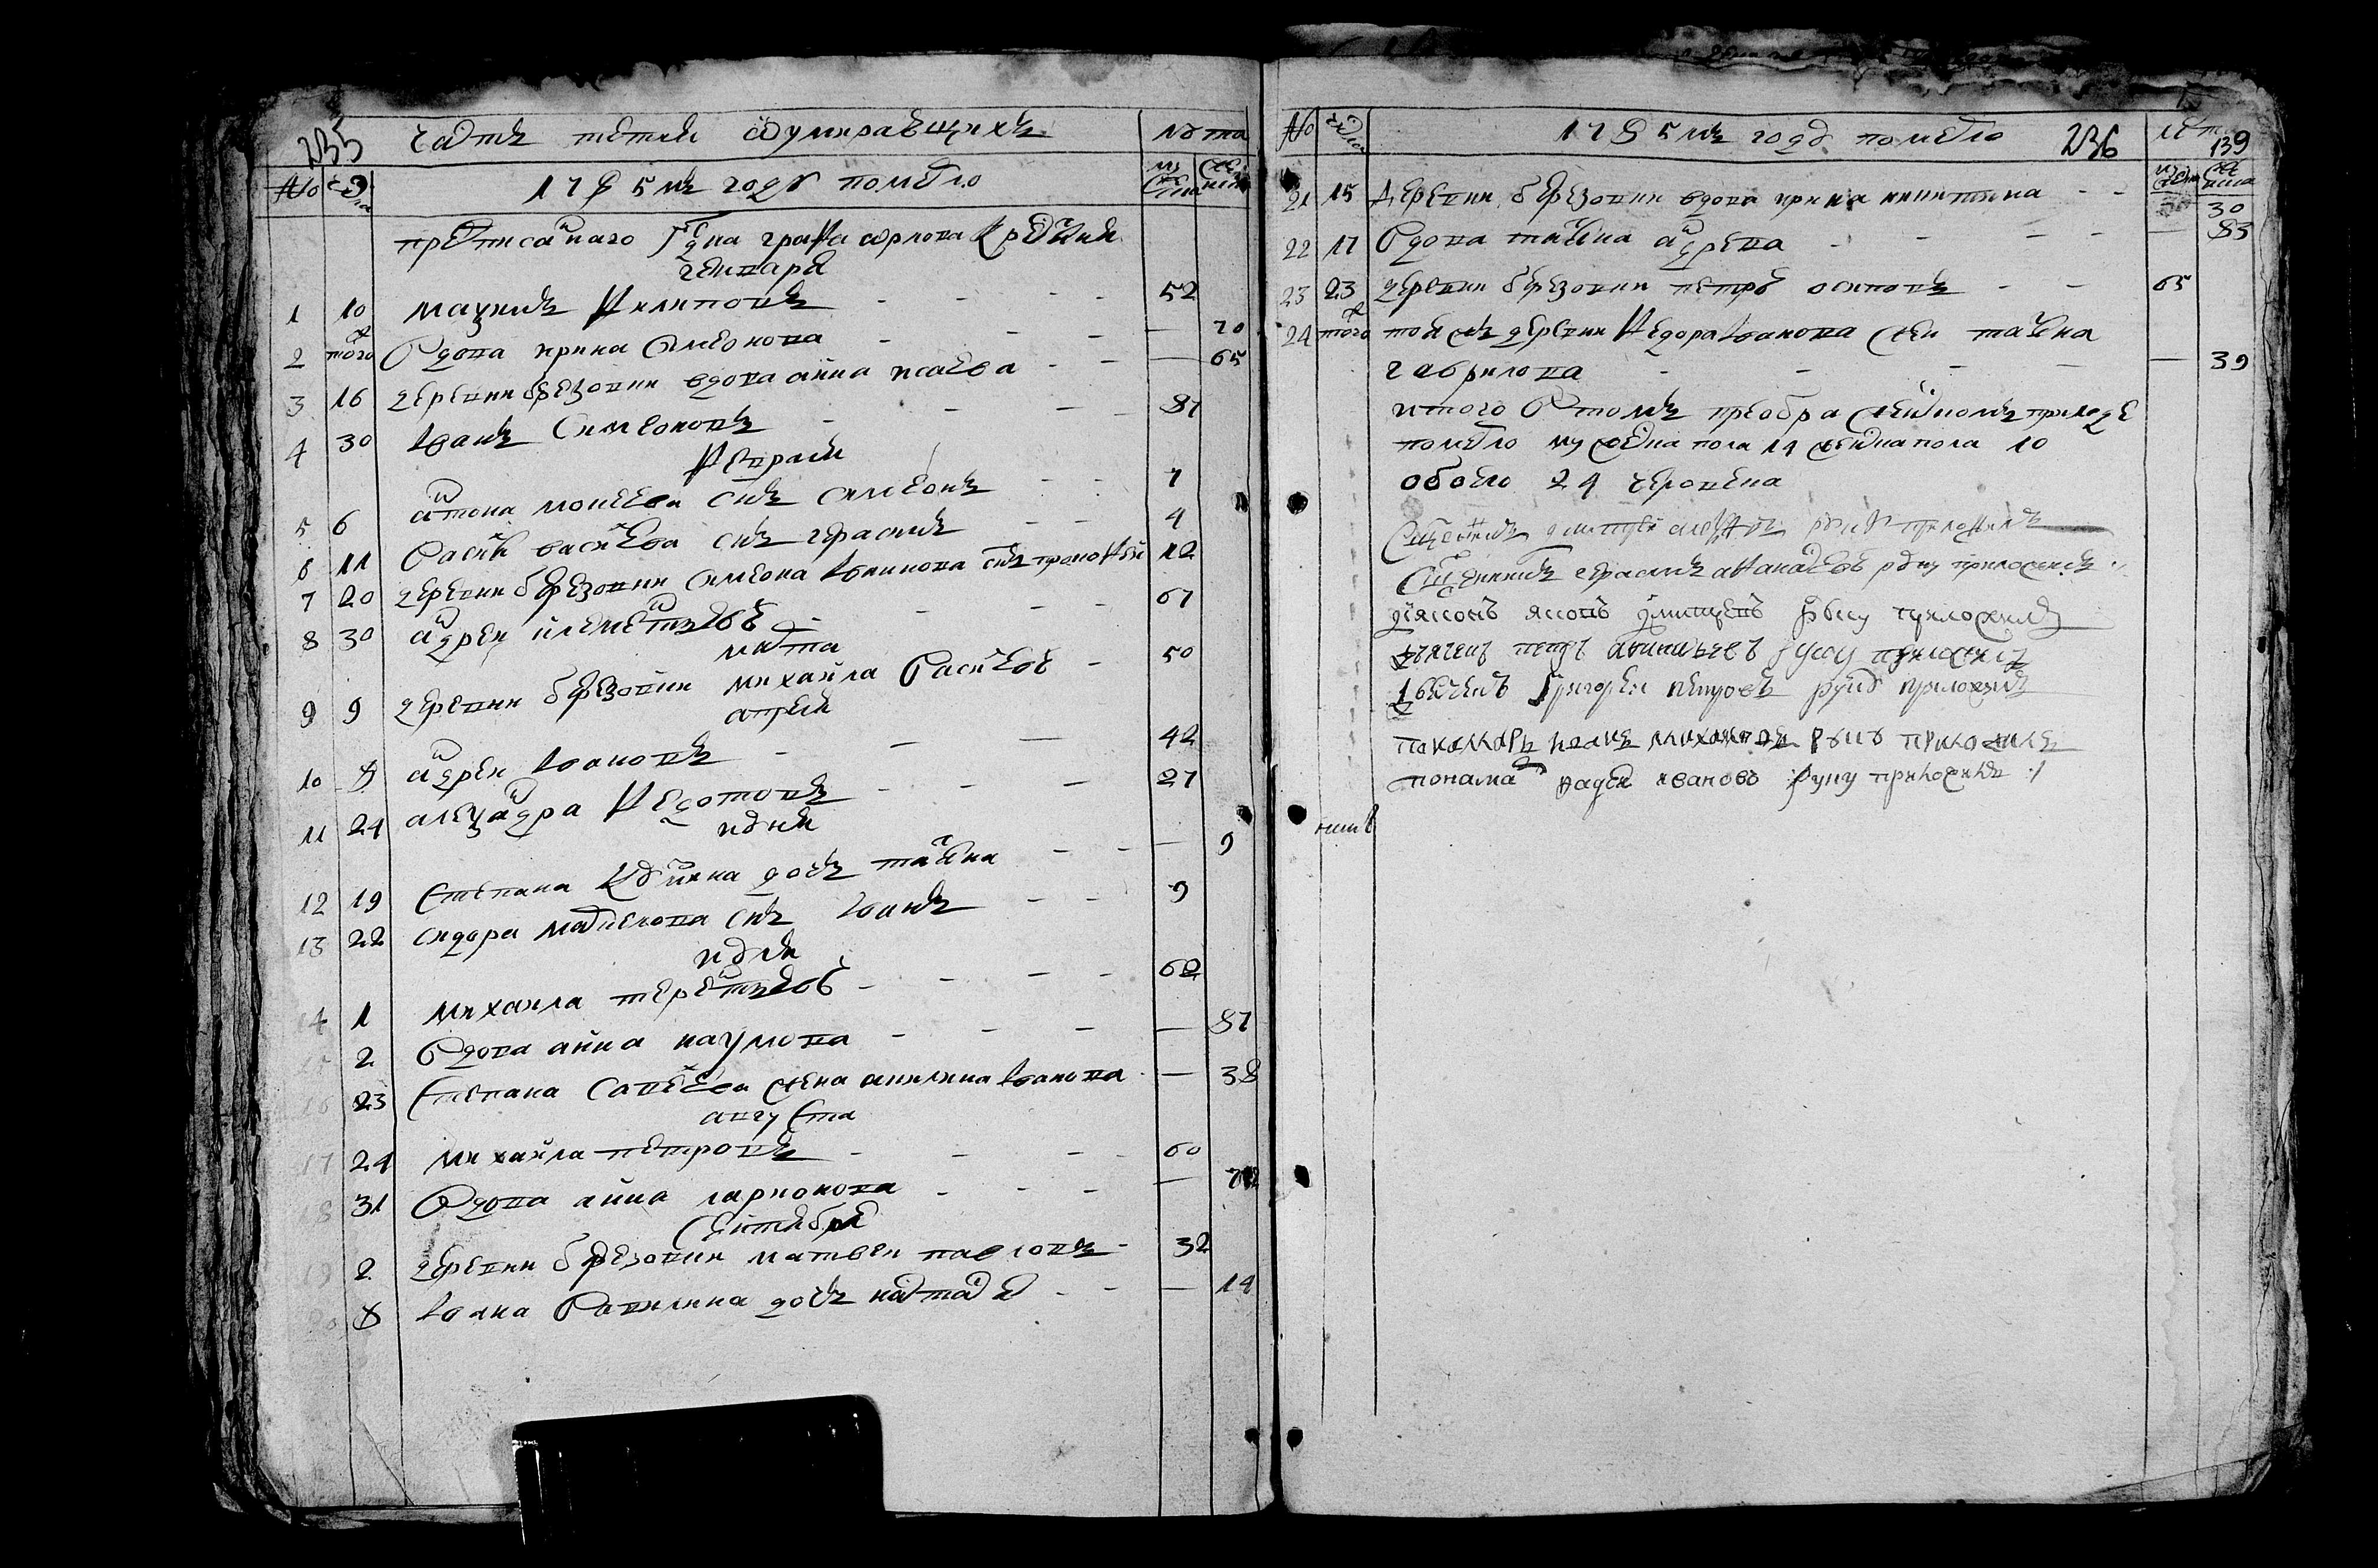 235 часть третия о умирающихъ лѣта
№ числа 1785мъ году померло му жеска женска
преписаннаго Гдна графа орлова крестьянъ
генваря
1 10 маѯимъ Филиповъ - - - - 52
2 того вдова ирина симеонова - - - — 70
3 16 деревни березовки вдова анна исаева - - — 65
4 30 Іванъ Симеоновъ - - - 87
февраля
5 6 антона моисеева снъ симеонъ - - 7
6 11 васиья василева снъ герасимъ - - 4
7 20 деревни березовки симеона снъ прокофей 12
8 30 андреи клементьевъ - - - - 67
марта
9 9 деревни березовки михаила василевъ - 50
апреля
10 8 андреи Івановъ - - — 42
11 24 алеѯандра Федотовъ - - - 27
июня
12 19 степана дочь татяна - - — 9
13 22 сидора снъ Іванъ - - 9
июля
14 1 михаила терентьевъ - - - - 62
15 2 вдова анна наумова - - - — 87
16 23 степана савелева жена акилина Іванова - — 38
августа
17 24 михаила петровъ - - - - 60
18 31 вдова анна ларионова - - - —
сентября
19 2 деревни березовки матвеи павловъ - 32
20 8 Іоана дочь наталя - - — 14
№ числа 1785мъ году померло 236 лѣта 139
му жеска женска
21 15 деревни березовки вдова ирина никитина - - 30
22 17 вдова татяна андреева - - - - — 83
23 23 деревни березовки петръ осиповъ - - 65
24 того тояжъ деревни Федора Іванова жена татяна
гаврилова - - - - — 39
итого в томъ преображенскомъ приходе
померло мужеска пола 14 женска пола 10
обоего 24 человека
Священникъ димитреи руку приложилъ
Священникъ герасимъ афанасьевъ руку приложилъ
диаконъ яковъ димитреевъ руку приложилъ
дьячекъ петръ руку приложилъ
дьячекъ григореи петровъ руку приложилъ
пономарь иванъ михаиловъ руку приложилъ
понамарь фадеи ивановъ руку приложилъ